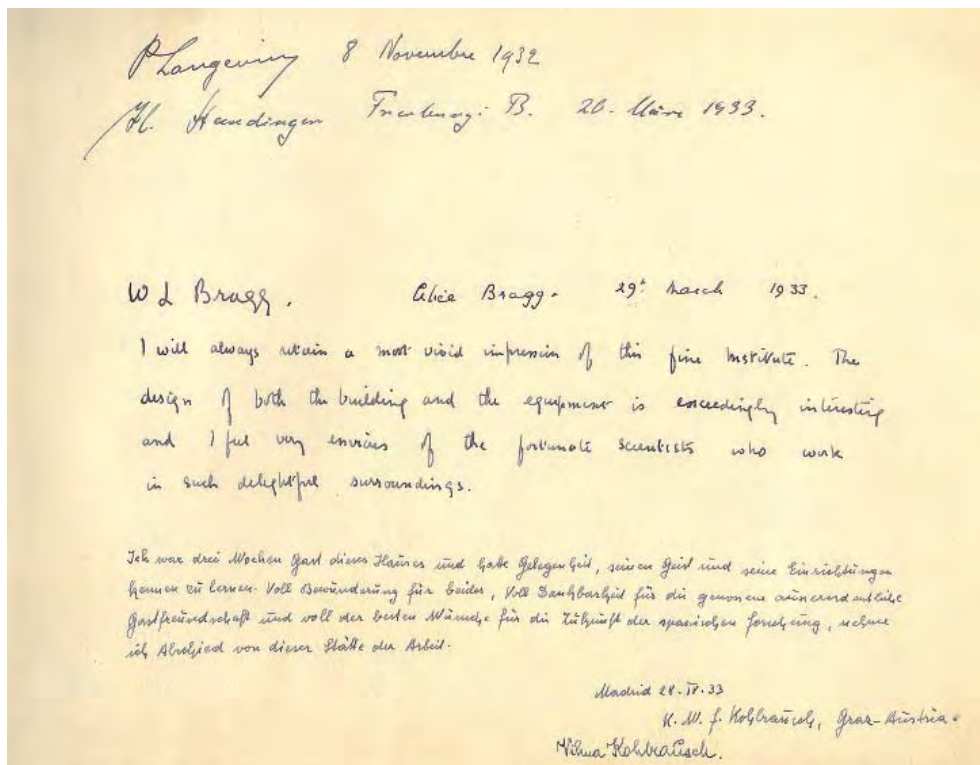 P Langevin 8 Novembre 1932
H. Staudinger Freiburg i. B. 20. März 1933.
W L Bragg. Alice Bragg. 29t March 1933.
I will always retain a most vivid impression of this fine Institute. The
design of both the building and the equipment is exceedingly interesting
and I feel very envious of the fortunate scientists who work
in such delightful surroundings.
Ich war drei Wochen Gast dieses Hauses und hatte Gelegenheit, seinen Geist und seine Einrichtungen
kennen zu lernen. Voll Bewunderung für beides, voll Dankbarkeit für die genossene ausserordentliche
Gastfreundschaft und voll der besten Wünsche für die Zukunft der spanischen Forschung, nehme
ich Abschied von dieser Stätte der Arbeit.
Madrid 28.IV.33
K. W. F. Kohlrausch, Graz-Austria.
Vilma Kohlrausch.